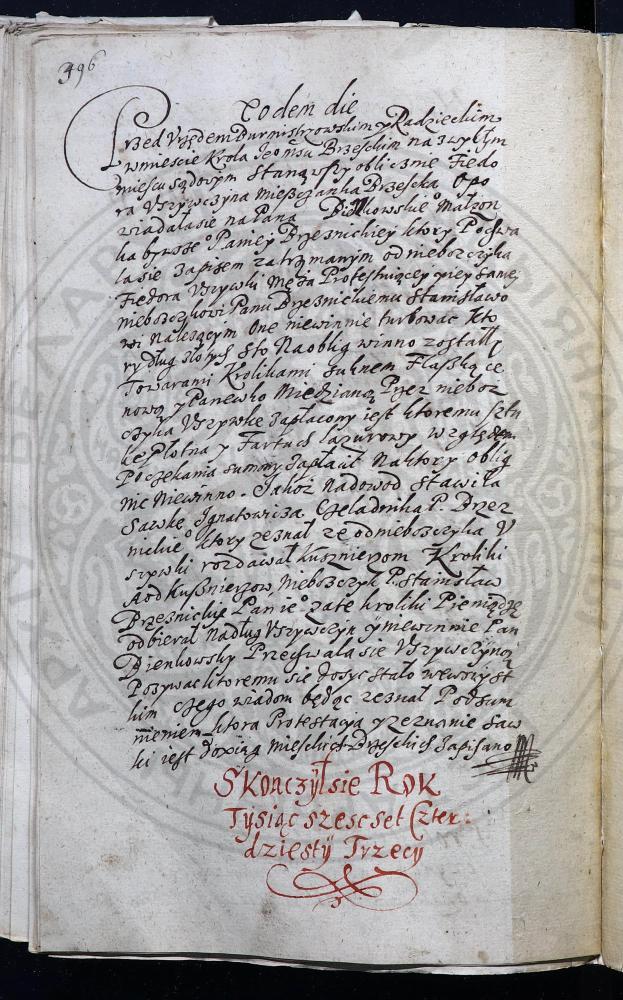 496
Eodem die
Przed Vrzędem Burmistrzowskim y Radzieckim
w mieście Krola Jeo Msci Brzeskim na zwykłym
miescu sądowym stanąwszy oblicznie Fiedo
ra Vszywczyna Miesczanka Brzeska Opo
wiadała sie na Pana Małzon
ka bywsze Paniey Brzeznickiey ktory Pochwa
la sie Zapisem zatrzymanym od nieboszczyka
Fiedora Vszywki Męza Protestuiącey y iey samey
nieboszczykowi Panu Brzeznickiemu Stanisławo
wi należącym one niewinnie turbować kto
ry dług złotych sto Na oblig winno zostały
Towarami Krolikami suknem Flaszką ce
nową y Panewko Miedzianą Przez niebosz
czyka Vszywkę zapłacony iest ktoremu sztu
kę Płotna y Fartuch lazurowy względem
Poczekania summy zapłacił Na ktory oblig
nic Niewinno. Jakoż Na dowod stawiła
Sawkę Ignatowicza Czeladnika P. Brzez
nickie ktory zeznał ze od nieboszczyka V
szywki rozdawał kusznierzom Kroliki
A od kusznierzow Nieboszczyk P. Stanisław
Brzeznicky Pan ie za te kroliki Pieniądze
odbierał Na dług Vszywczyn y niewinnie Pan
Dzienkowsky Przechwala sie Vszywczyną
Pozywac ktoremu sie dosyc stało we wszyst
kim czego wiadom będąc zeznał Pod sum
nieniem ktora Protestacya y zeznanie Saw
ki iest do xiąg mieskich Brzeskich zapisano
Skonczył sie Rok
Tysiąc szescset Czter:
dziesty Trzecy